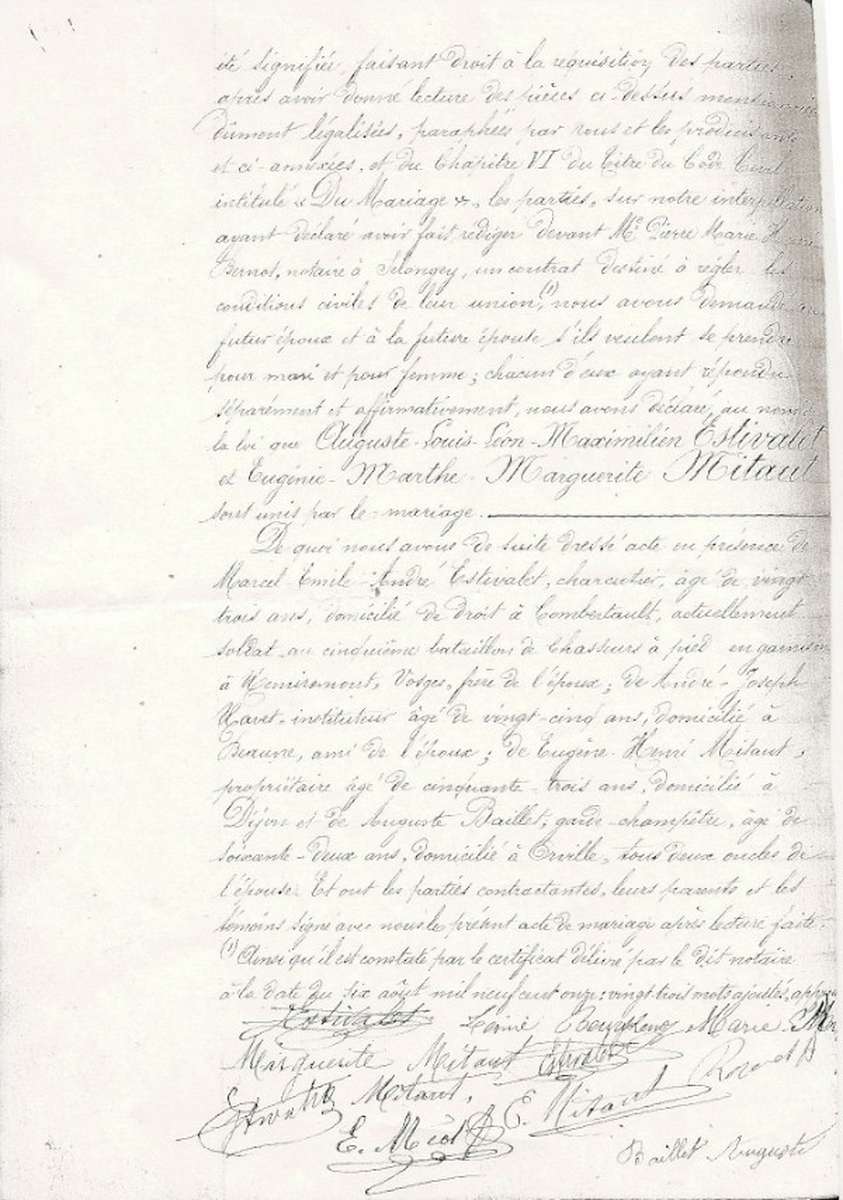 été signifiée, faisant droit à la réquisition des parties,
après avoir donné lecture des pièces ci-dessus
dûment légalisées, paraphées par nous et les
et ci-annexées, et du Chapitre VI du Titre du Code Civil
intitulé « Du Mariage », les parties, sur notre interpellation
ayant déclaré avoir fait rédiger devant Me Pierre Marie
Bernot, notaire à Selongey, un contrat destiné à régler les
conditions civiles de leur union, (1) nous avons demandé
futur époux et à la future épouse s'ils veulent se prendre
pour mari et pour femme; chacun d'eux ayant répondu
séparément et affirmativement, nous avons déclaré, au nom
la loi que Auguste-Louis-Léon-Maximilien Estivalet
et Eugénie-Marthe-Marguerite Mitaut
sont unis par le mariage.
De quoi nous avons de suite dressé acte en présence de
Marcel-Emile-André Estivalet, charcutier, âgé de vingt
trois ans, domicilié de droit à Combertault, actuellement
soldat au cinquième bataillon de Chasseurs à pied en garnison
à Remiremont, Vosges, frère de l'époux; de André-Joseph
instituteur âgé de vingt-cinq ans, domicilié à
Beaune, ami de l'époux; de Eugène-Henri Mitaut,
propriétaire âgé de cinquante-trois ans, domicilié à
Dijon et de Auguste Baillet, garde-champêtre, âgé de
soixante-deux ans, domicilié à Orville, tous deux oncles de
l'épouse. Et ont les parties contractantes, leurs parents et les
témoins signé avec nous le présent acte de mariage après lecture faite.
(1) Ainsi qu'il est constaté par le certificat délivré par le dit notaire
à la date du six août mil neuf cent onze: vingt trois mots ajoutés,
Estivalet Marie
Marguerite Mitaut Estivalet
Estivalet Mitaut,
E. E. Mitaut
Baillet Auguste